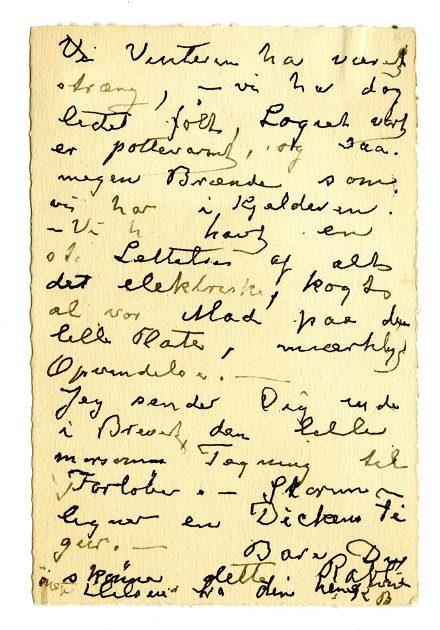 Vinteren har været
stræng, – vi har dog
lidt, Logiet vort
er pottevarmt, og saa
megen Brænde som
vi har i Kjelderen.
– Vi h havt en
Lettelse af alt
det elektriske, kogt
al vor Mad paa den
lille Plate, mærkelig
Opfindelse. –
Jeg sender Dig inde
i Brevet den lille
morsomme Tegning til
Forlöber. – Storm –
ligner en Dickens fi
gur. – Bare Du
skönne dette
Hilsen fra din